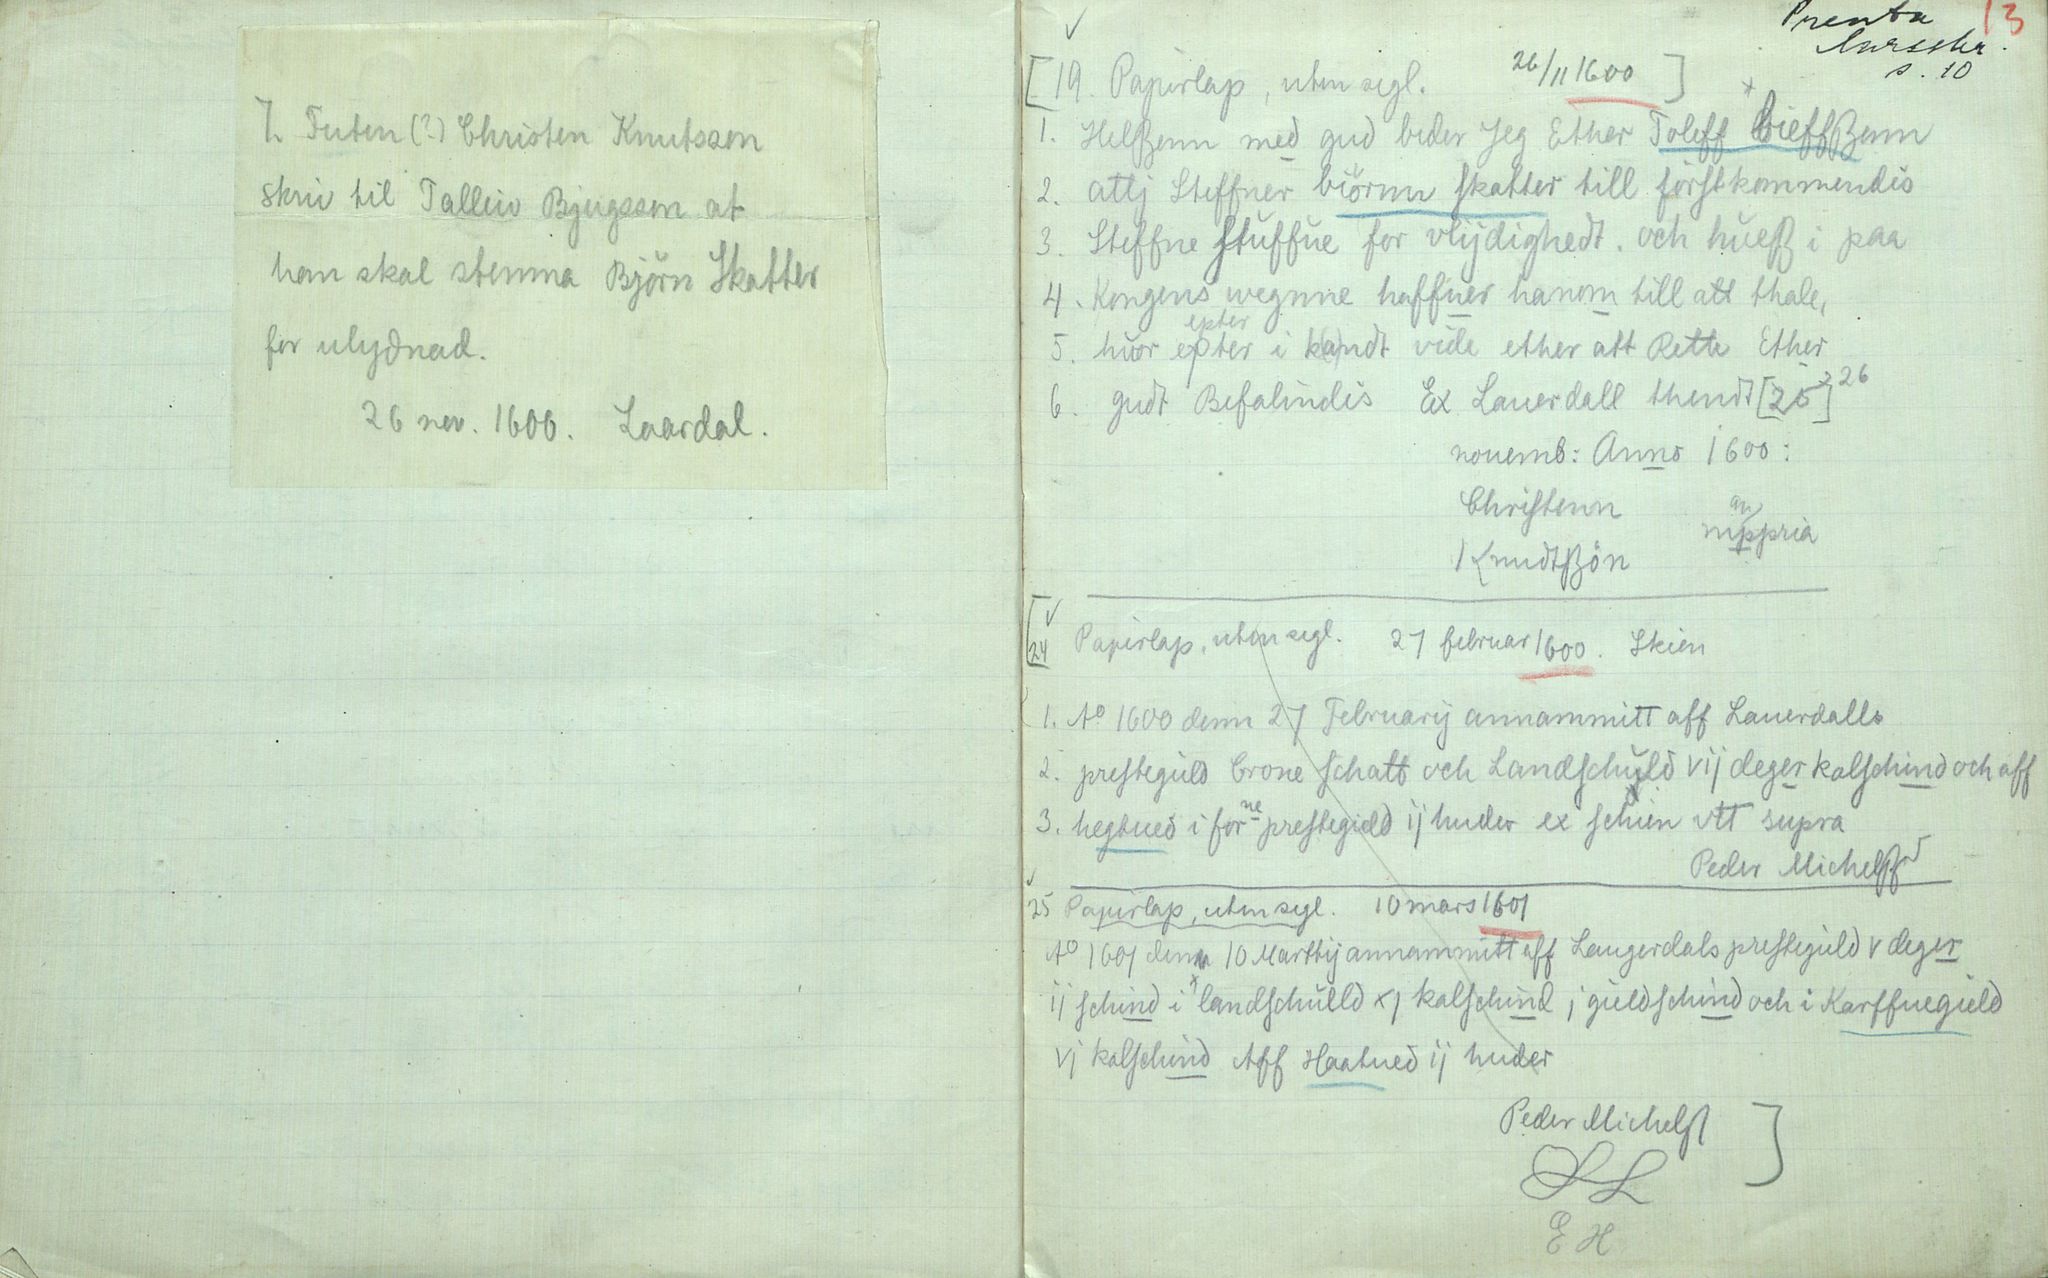 7. Futen (?) Christen Knutsson
skriv til Talleiv Bjugsson at
han skal stemna Björn Skatter
for ulydnad.
26 nov. 1600. Laardal.
Prenta 13
Aarsskr.
s. 10
[19. Papirlap, uten segl. 26/11 1600 ]
1. Helßenn med gud beder Jeg Ether Toleff bieffßenn
2. attj Steffner biörnn skatter till förstkommendis
3. Steffne stuffue for vlijdighedt. och hueß i paa
4. Kongens wegnne haffuer hanom till att thale,
epter
5. huor epter i kandt vide ether att Rette Ether
6. gudt Befalindis Ex Lauerdall thendt [25] 26
nouemb: Anno 1600:
Christenn
Knudtßön mppria
[24 Papirlap, uten segl. 27 februar 1600. Skien
1. Ao 1600 denn 27 Februarij annammitt aff Lauerdalls
2. prestegield Crone schatt och Landschuld vij deger kalschind och aff
3. hegtued i forne prestegield ij huder ex schien vtt supra
Peder Michelß
25 Papirlap, uten segl. 10 mars 1601
Ao 1601 denn 10 Marttij annammitt aff Laugerdals prestegield v deger
ij schind i landschulld xj kalschind j gieldschind och i Karffuegield
vj kalschind Aff Haatued ij huder
Peder Michelß ]
E H